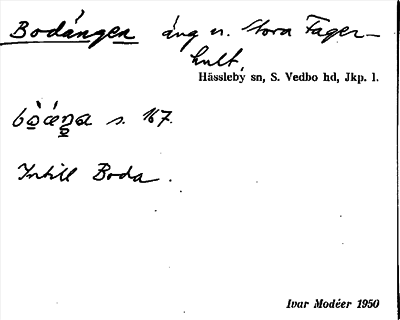 Bodängen äng u. Stora Fager-
hult,
Hässleby sn, S. Vedbo hd, Jkp. l.
s. 167.
Intill Boda.
Ivar Modéer 1950